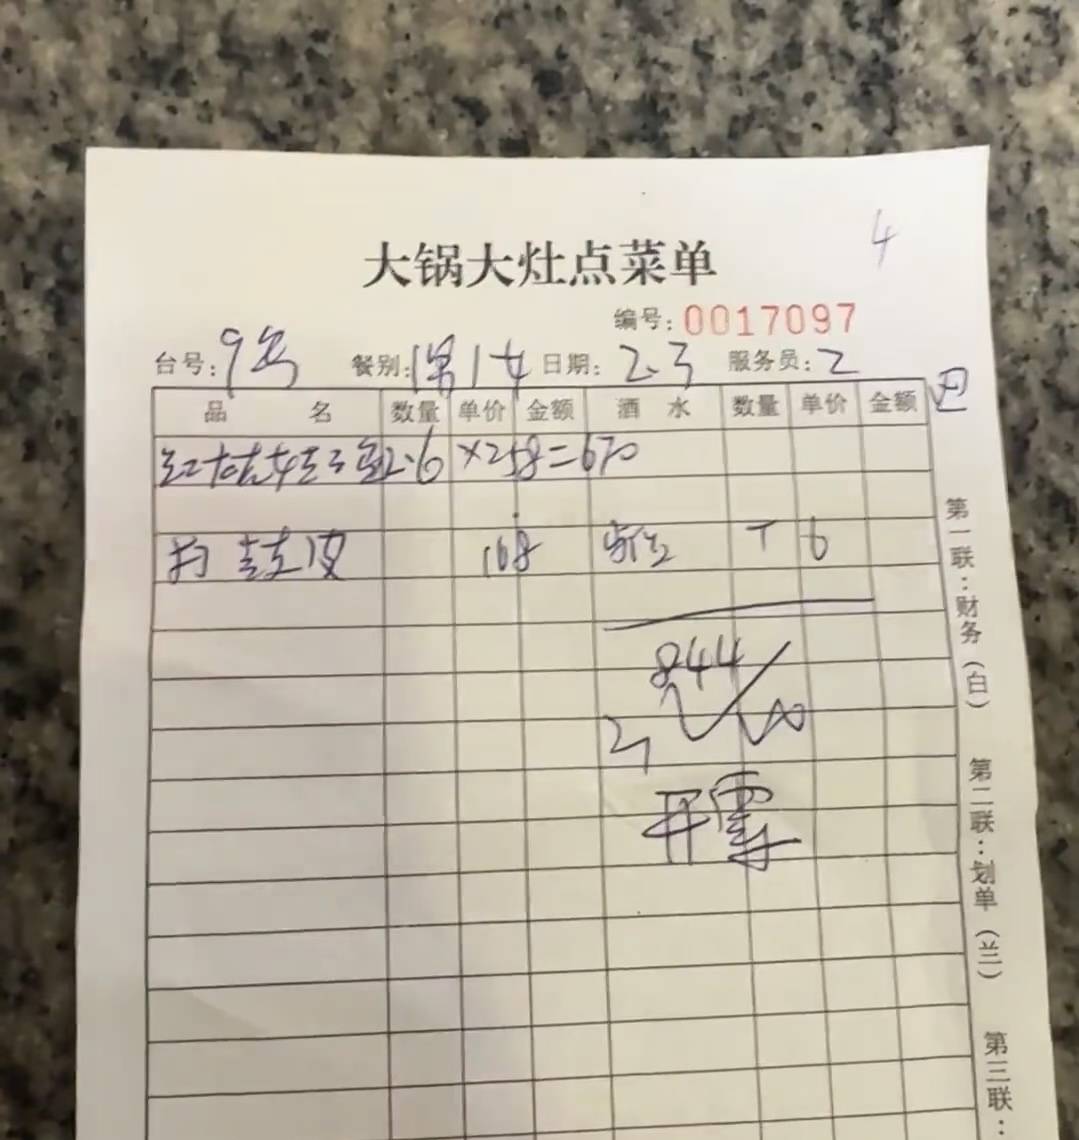 4
大锅大灶点菜单
编号: 0017097
台号: 9号 餐别: 日期: 2.3 服务员: 2
品 名 数量 单价 金额 酒 水 数量 单价 金额
2.6 ×258=670
皮 168 餐位 T 6
844
开票
第一联:财务(白) 第二联:划单(兰) 第三联: